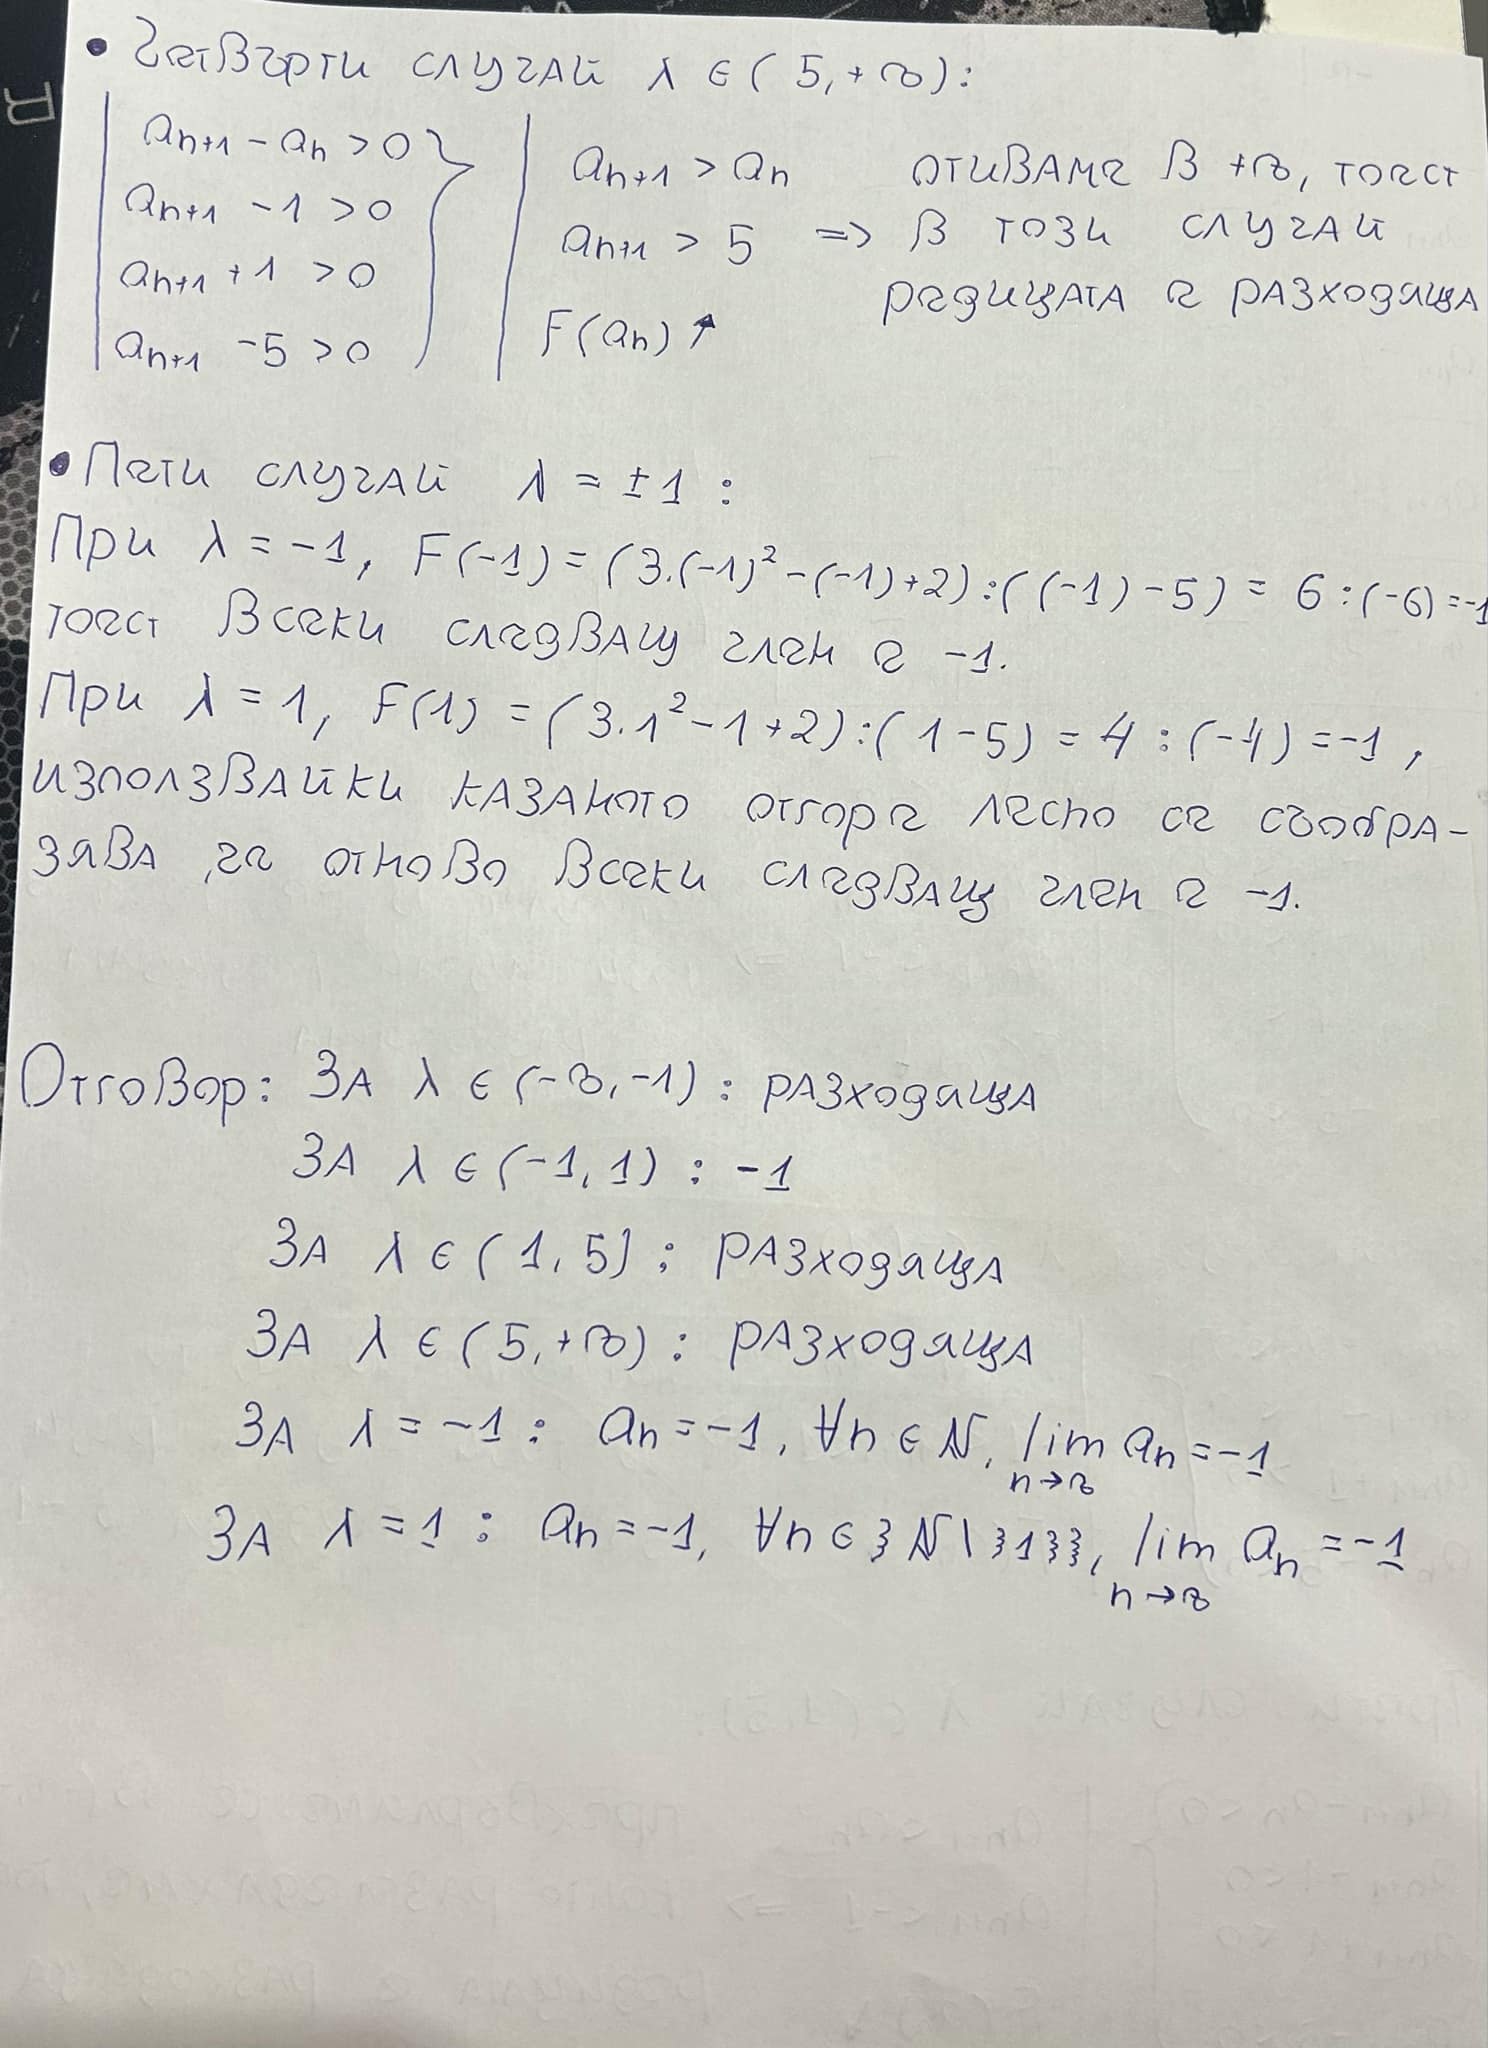 • Четвърти случай λ ∈ (5, +∞):
aₙ₊₁ - aₙ > 0
aₙ₊₁ - 1 > 0
aₙ₊₁ + 1 > 0
aₙ₊₁ - 5 > 0
aₙ₊₁ > aₙ
aₙ₊₁ > 5 =>
F(aₙ) ↗
отиваме в +∞, тоест
в този случай
редицата е разходяща
• Пети случай λ = ±1 :
При λ = -1, F(-1) = (3.(-1)² - (-1) + 2) : ((-1) - 5) = 6 : (-6) = -1
тоест всеки следващ член е -1.
При λ = 1, F(1) = (3.1² - 1 + 2) : (1 - 5) = 4 : (-4) = -1 ,
използвайки казаното отгоре лесно се съобра-
зява ,че отново всеки следващ член е -1.
Отговор: За λ ∈ (-∞, -1) : разходяща
За λ ∈ (-1, 1) : -1
За λ ∈ (1, 5] : разходяща
За λ ∈ (5, +∞) : разходяща
За λ = -1 : aₙ = -1, ∀n ∈ ℕ, lim aₙ = -1
n→∞
За λ = 1 : aₙ = -1, ∀n ∈ {ℕ \ {1}}, lim aₙ = -1
n→∞